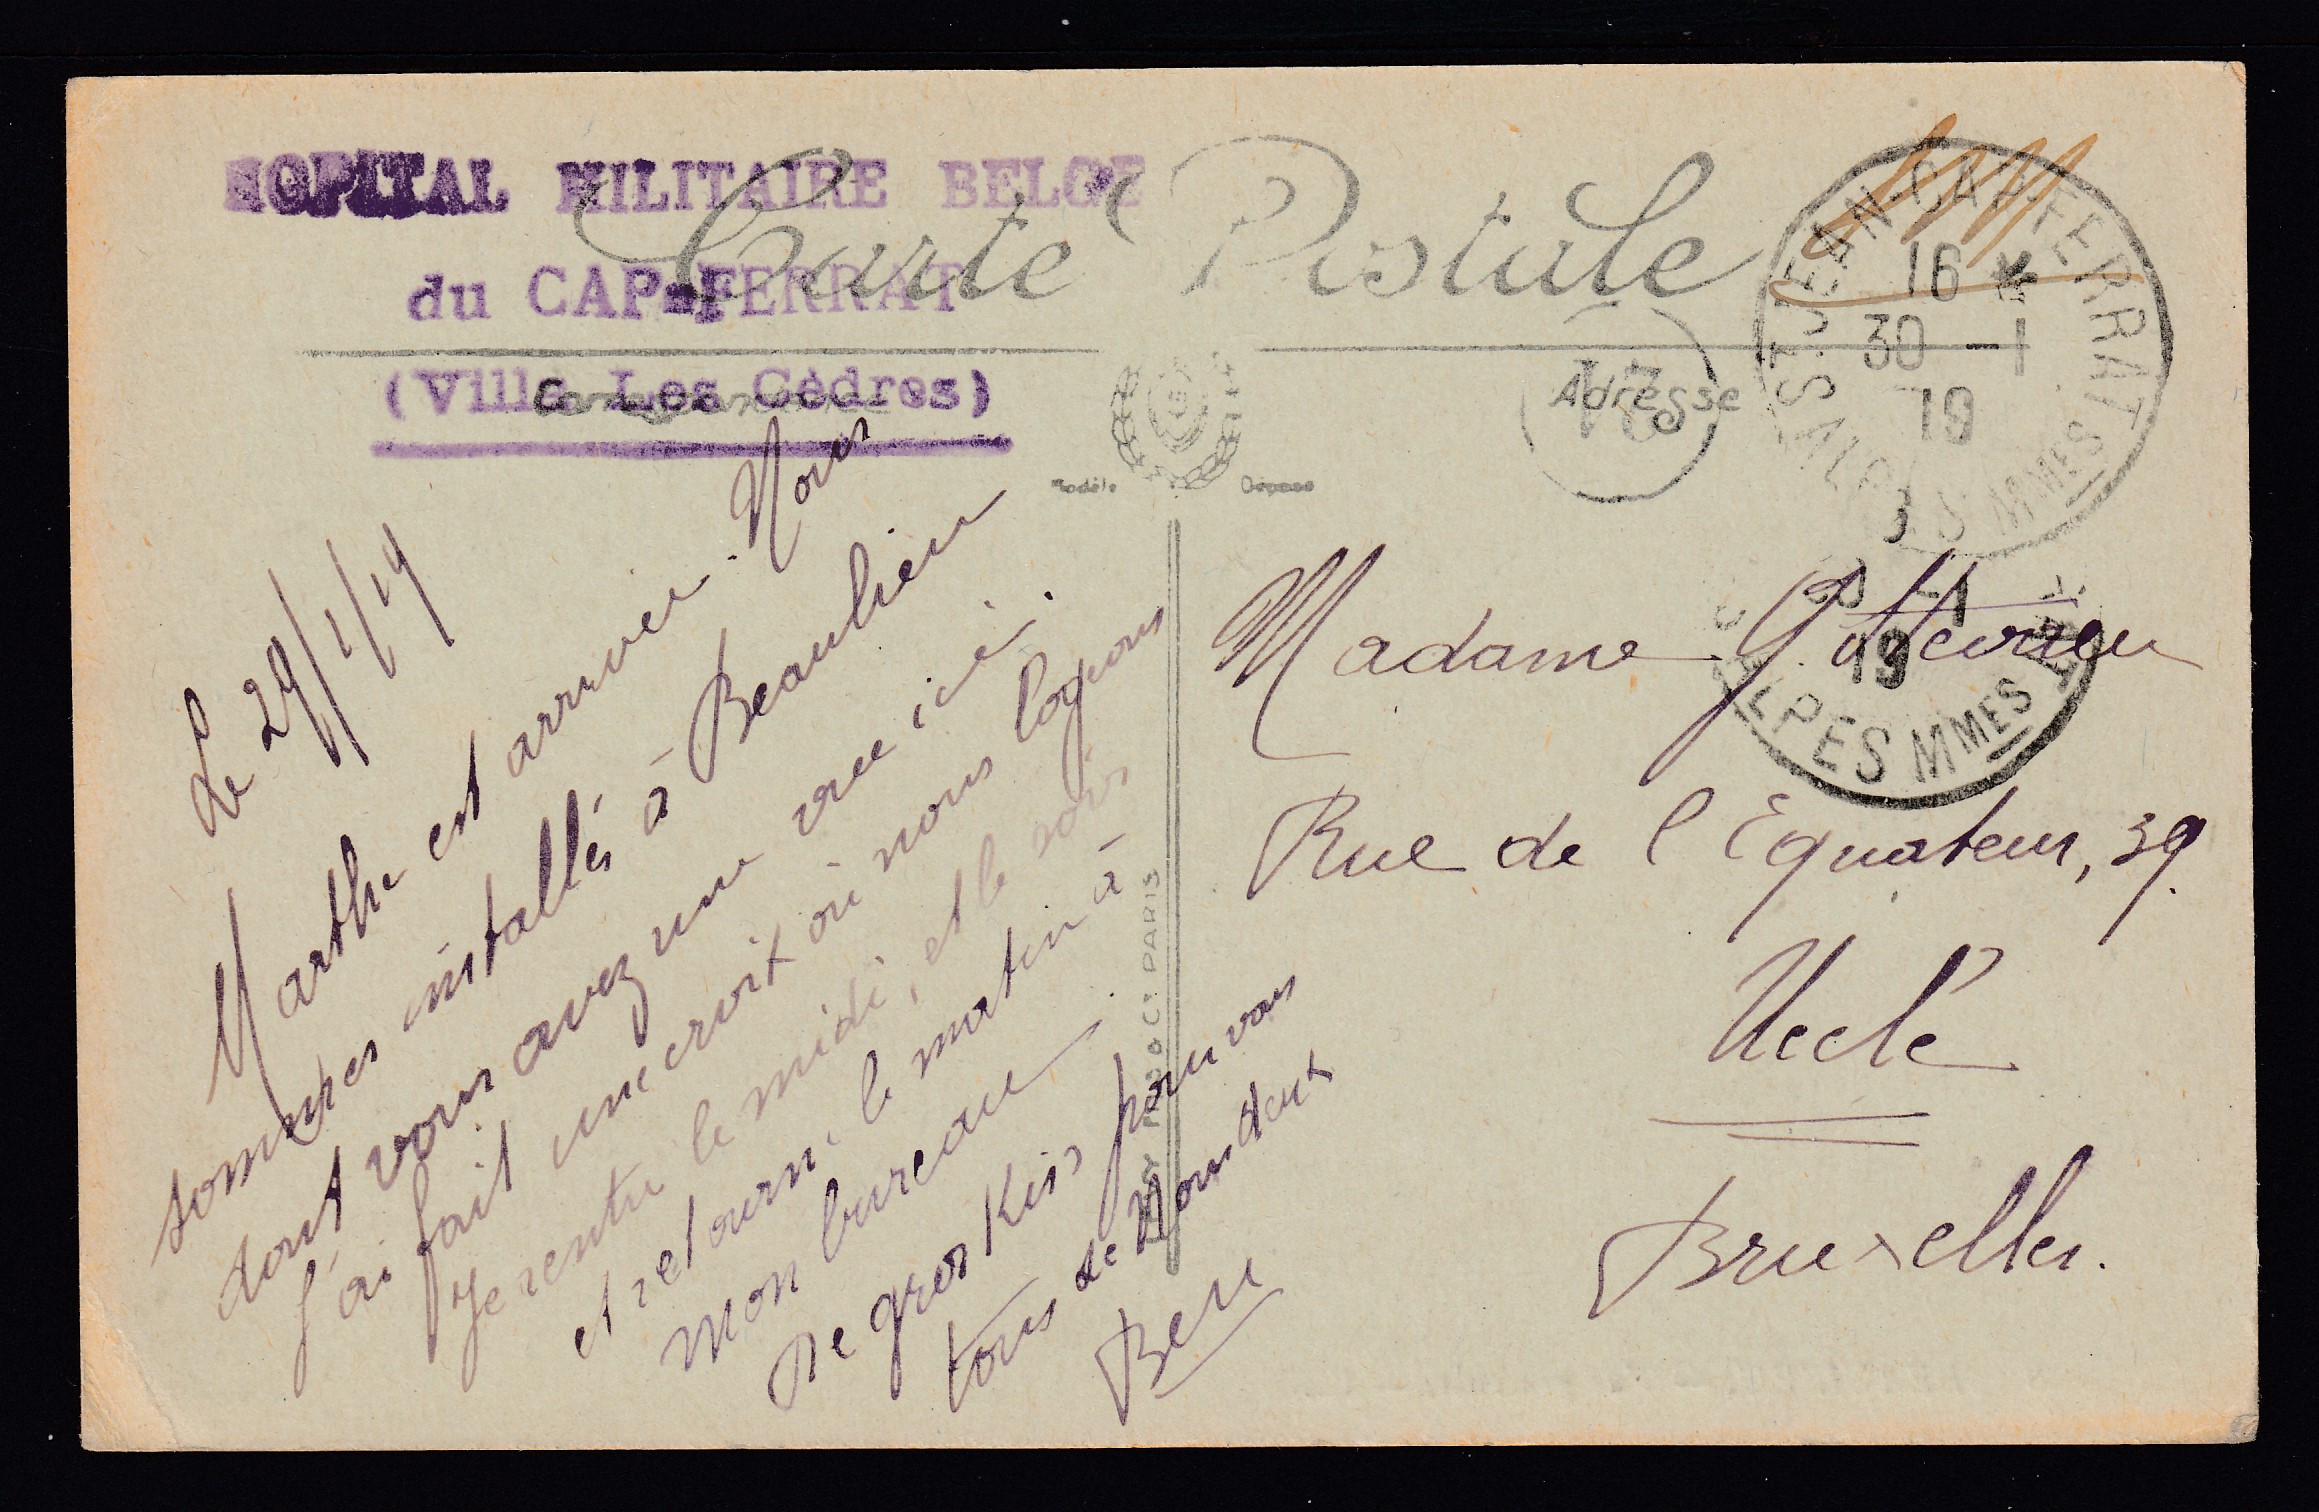 HOPITAL MILITAIRE BELGE
du CAP-FERRAT
(Villa Les Cèdres)
Carte Postale
Correspondance
Adresse
Modèle Déposé
ST JEAN CAP FERRAT
16 *
30 -1
19
ALPES MMES
13
-1
19
ALPES MMES
LEVY FILS & Cie PARIS
Le 29/1/19
Marthe est arrivée. Nous
sommes installés à Beaulieu
dont vous avez une vue ici.
J'ai fait une croix où nous logeons
Je rentre le midi, et le soir
et retourne le matin à
mon bureau
De gros Kiss pour vous
tous de Nous deux
Madame J.
Rue de l'Equateur, 39.
Uccle
Bruxelles.